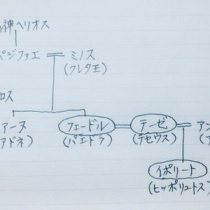 神ヘリオス
パジファエ ミノス
(クレタ王)
ロス
アーヌ フェードル テーゼ アン
アドネ) (パエドラ) (テセウス)
イポリート
(ヒッポリュトス)